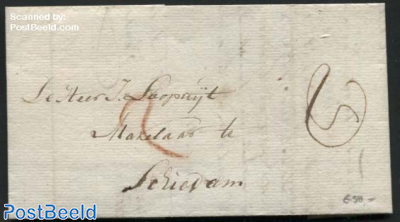 Scanned by:
PostBeeld.com
De Heer J.
Makelaar te
Schiedam
650.-
PostBeeld